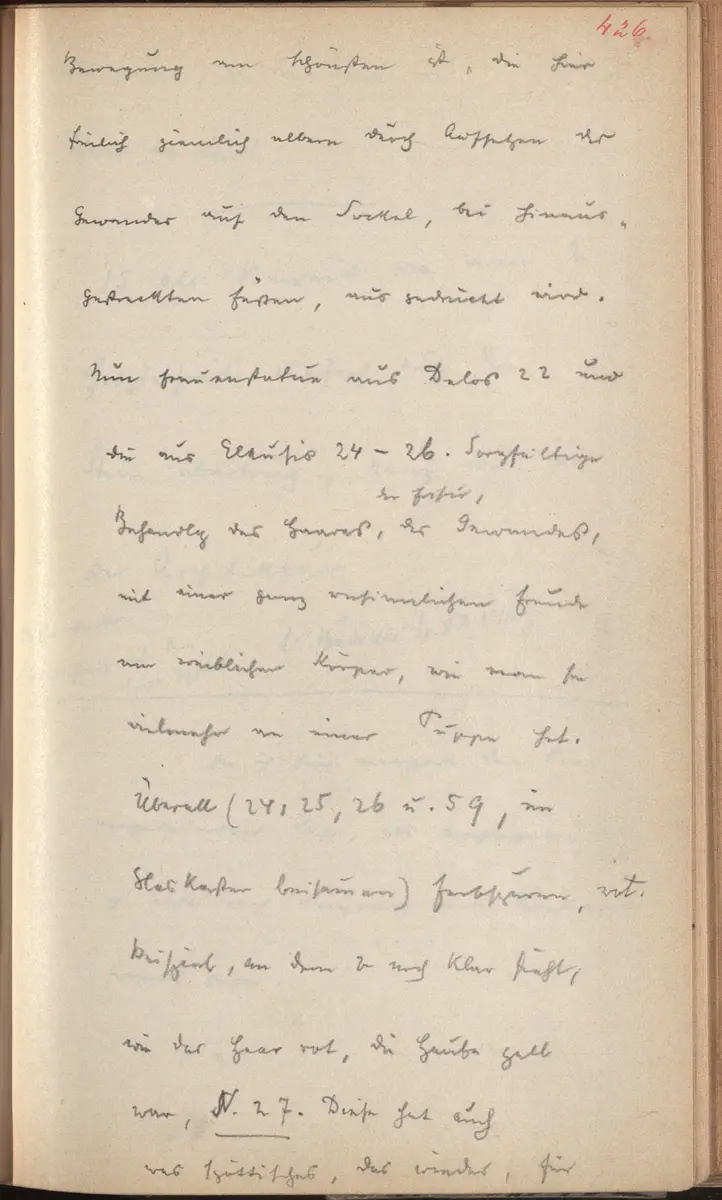 426.
Bewegung am schönsten ist, die hier
freilich ziemlich albern durch Aufsetzen des
Gewandes auf den Sockel, bei hinaus-
gestreckten Füßen, ausgedrückt wird.
Nun Frauenstatue aus Delos 22 und
die aus Eleusis 24 – 26. Sorgfältige
der Frisur,
Behandlg des Haares, des Gewandes,
mit einer ganz unsinnlichen Freude
am weiblichen Körper, wie man sie
vielmehr an einer Puppe hat.
Überall (24, 25, 26 u. 59, im
Glaskasten beisammen) Farbspuren, rot.
Beispiel, an dem noch klar sieht,
wie das Haar rot, die Haube gelb
war, N. 27. Diese hat auch
was spöttisches, das wieder, für